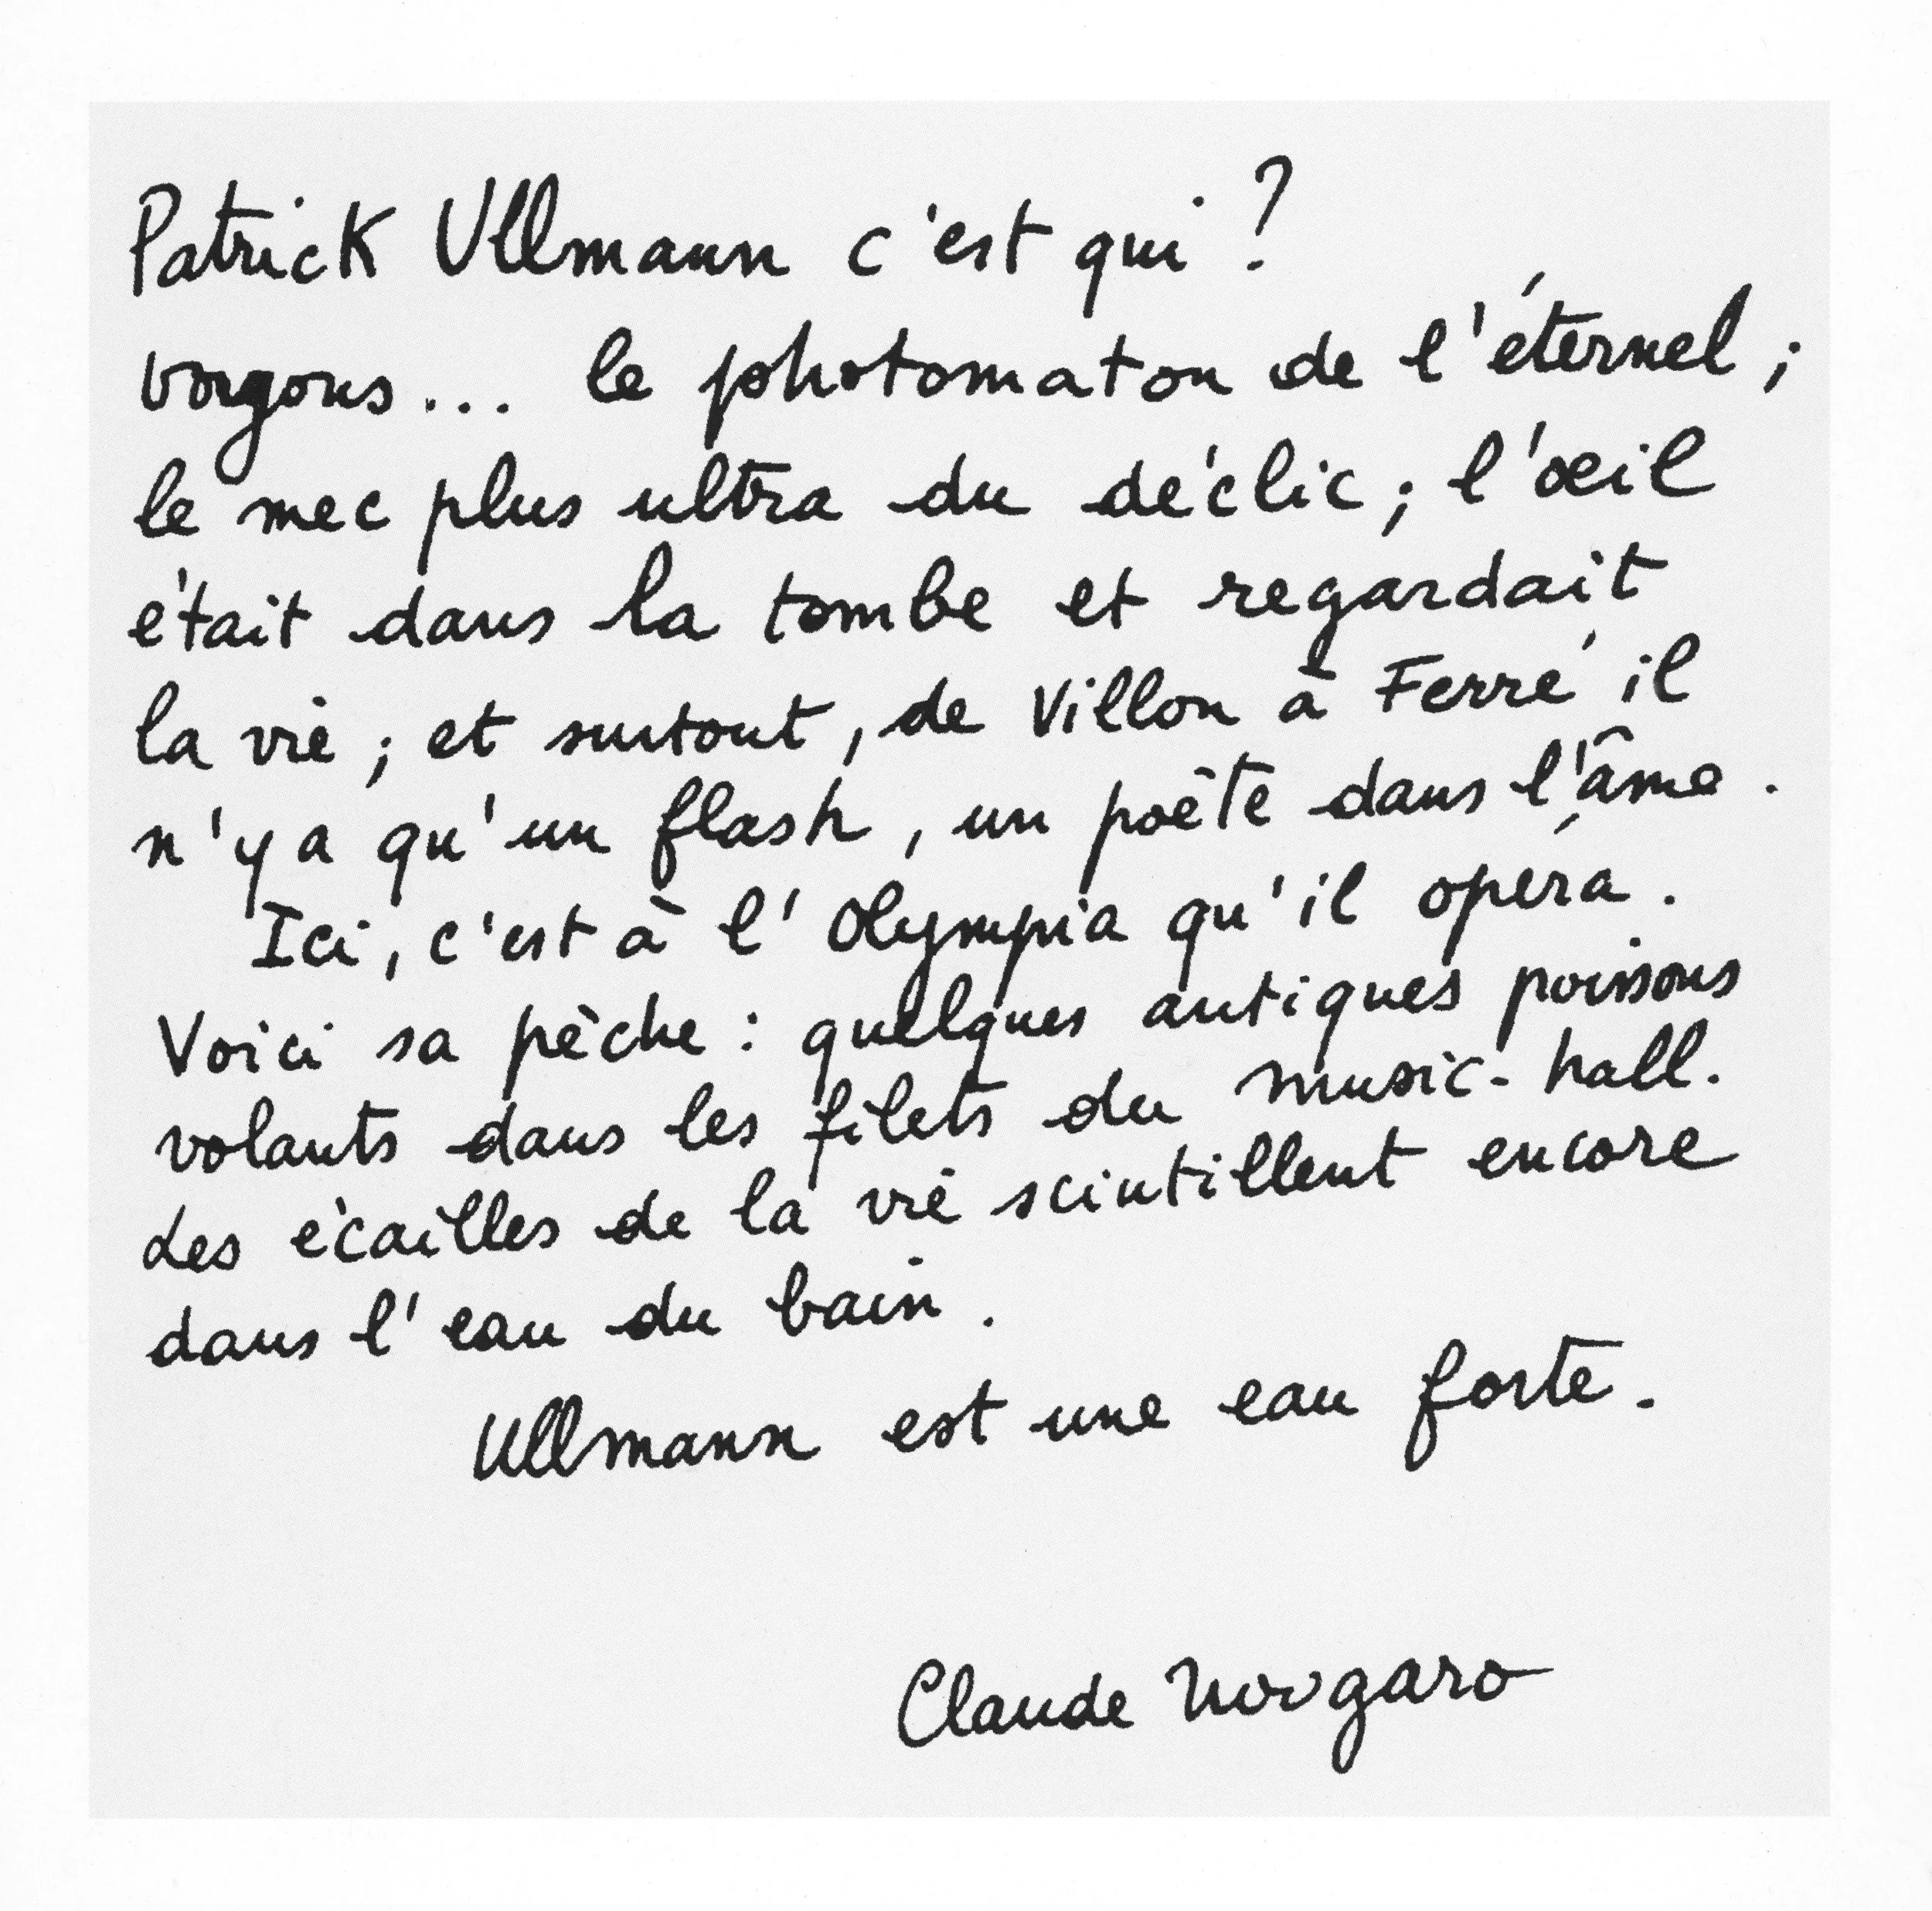 Patrick Ullmann c'est qui ?
voyons... le photomaton de l'éternel ;
le mec plus ultra du déclic ; l'œil
était dans la tombe et regardait
la vie ; et surtout, de Villon à Ferré il
n'y a qu'un flash, un poète dans l'âme.
Ici, c'est à l'Olympia qu'il opéra.
Voici sa pêche : quelques antiques poissons
volants dans les filets du music-hall.
Les écailles de la vie scintillent encore
dans l'eau du bain.
Ullmann est une eau forte.
Claude Nougaro